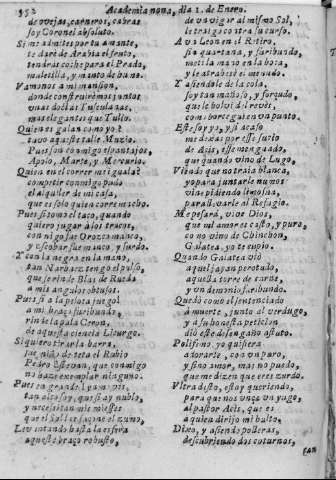 352 Academia nona, dia 1. de Enero.
de ovejas, carneros, cabras
soy Coronel absoluto.
Si me admites por tu amante,
te daré de Arabia el fruto,
tendras coche para el Prado,
muletilla, y manto de humo.
Vamonos a mi mansion,
donde construiremos juntos
unas doctas Tusculanas,
mas elegantes que Tulio.
Quien es galan como yo?
tavo aqueste talle Muzio
Pues son conmigo espantajos,
Apolo, Marte, y Mercurio.
Quien en el correr me iguala?
competir conmigo pudo
el alquiler de mi casa,
que es solo quien corre mucho.
Pues si tomo el taco, quando
quiero jugar a los trucos,
con migo fue Orozco manco,
y Escobar fue manco, y surdo.
Y con la negra en la mano,
tan Narbaez tengo el pulso,
que se rinde Blas de Rueda
a mis angulos obtusos.
Pues si a la pelota juego
a mi braço furibundo,
rinde la pala Ceron,
de aquesta ciencia Licurgo.
Si quiero tirar la barra,
fue niño de teta el Rubio
Pedro Estevan, que conmigo
no haze exemplar ninguno.
Pues en grande
tan alto soy, que si ay nublo,
y necessitan mis miesses
que el Sol le sazone el zumo,
Levantando hasta la esfera
aqueste braço robusto,
de un vigor al mismo Sol,
le traigo con tra su curso.
A un Leon en el Retiro,
si a quartana, y furibundo,
metí la mano en la boca,
y le atravessé el menudo.
Y asiendole de la cola,
soy tan mañoso, y forçudo
que le bolvi del revés,
como borceguí en un punto.
Este soy yo, y si acaso
me dexas por esse suzio
de Acis, esse menguado,
que quando vino de Lugo,
Viendo que no traia blanca,
yo para juntarle nunos
vine pidiendo limosna,
para llevarle al Refugio.
Me pesará, vive Dios,
que mi amor es casto, y puro,
como vino de Chinchon,
Galatea, yo te expio.
Quando Galatea vió
aquel jayan perotudo,
aquella torre de carne,
y un demonio furibundo.
Quedó como el sentenciado
a muerte, junto al verdugo,
y a su honesta peticion
dió este desengaño astuto.
Polifemo, yo quisiera
adorarte, con un puro,
y fino amor, mas no puedo,
que me dizen que eres zurdo.
Ultra desto, estoy queriendo,
para que nos unce un yugo,
al pastor Acis, que es
a quien dirijo mi bulto.
Dixo, y asiendo polleras,
descubriendo dos coturnos,